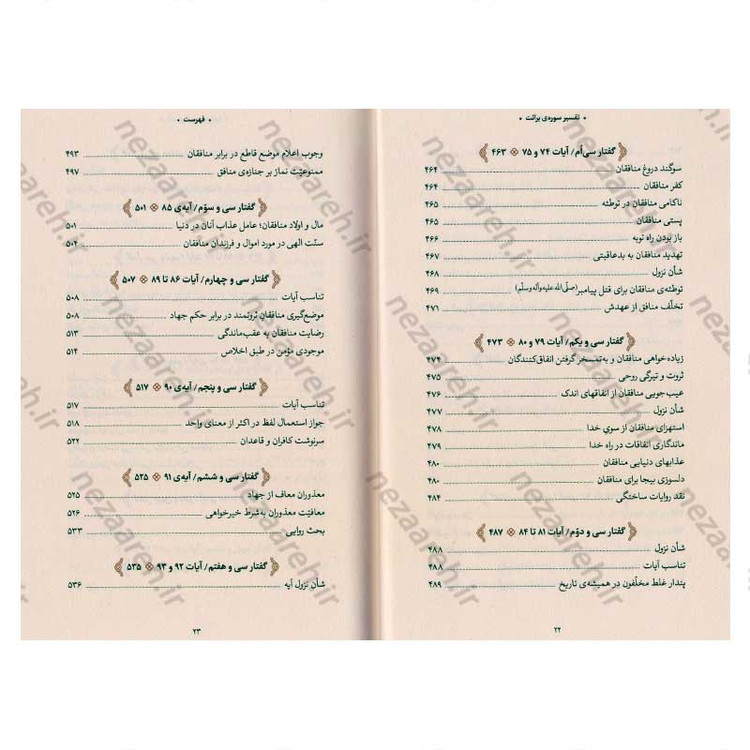 • تفسیر سوره‌ی برائت •
گفتار سی‌اُم/ آیات ۷۴ و ۷۵ ۴۶۳
سوگند دروغ منافقان ۴۶۴
کفر منافقان ۴۶۴
ناکامی منافقان در توطئه ۴۶۵
پستی منافقان ۴۶۵
باز بودن راه توبه ۴۶۶
تهدید منافقان به بدعاقبتی ۴۶۷
شأن نزول ۴۶۸
توطئه‌ی منافقان برای قتل پیامبر (صلّی‌الله‌علیه‌وآله‌وسلّم) ۴۶۹
تخلّف منافق از عهدش ۴۷۱
گفتار سی و یکم/ آیات ۷۹ و ۸۰ ۴۷۳
زیاده‌خواهی منافقان و به‌تمسخر گرفتن انفاق‌کنندگان ۴۷۴
ثروت و تیرگی روحی ۴۷۵
عیب‌جویی منافقان از انفاقهای اندک ۴۷۶
شأن نزول ۴۷۷
استهزای منافقان از سوی خدا ۴۷۸
ماندگاری انفاقات در راه خدا ۴۷۹
عذابهای دنیایی منافقان ۴۸۰
دلسوزی بیجا برای منافقان ۴۸۰
نقد روایات ساختگی ۴۸۴
گفتار سی و دوّم/ آیات ۸۱ تا ۸۴ ۴۸۷
شأن نزول ۴۸۸
تناسب آیات ۴۸۸
پندار غلط مخلّفون در همیشه‌ی تاریخ ۴۸۹
۲۲
• فهرست •
وجوب اعلام موضع قاطع در برابر منافقان ۴۹۳
ممنوعیّت نماز بر جنازه‌ی منافق ۴۹۷
گفتار سی و سوّم/ آیه‌ی ۸۵ ۵۰۱
مال و اولاد منافقان؛ عامل عذاب آنان در دنیا ۵۰۱
سنّت الهی در مورد اموال و فرزندان منافقان ۵۰۴
گفتار سی و چهارم/ آیات ۸۶ تا ۸۹ ۵۰۷
تناسب آیات ۵۰۸
موضع‌گیری منافقان ثروتمند در برابر حکم جهاد ۵۰۸
رضایت منافقان به عقب‌ماندگی ۵۱۳
موجودی مؤمن در طبق اخلاص ۵۱۴
گفتار سی و پنجم/ آیه‌ی ۹۰ ۵۱۷
تناسب آیات ۵۱۷
جواز استعمال لفظ در اکثر از معنای واحد ۵۱۸
سرنوشت کافران و قاعدان ۵۲۲
گفتار سی و ششم/ آیه‌ی ۹۱ ۵۲۵
معذوران معاف از جهاد ۵۲۵
معافیّت معذوران به‌شرط خیرخواهی ۵۲۶
بحث روایی ۵۳۳
گفتار سی و هفتم/ آیات ۹۲ و ۹۳ ۵۳۵
شأن نزول آیه ۵۳۶
۲۳
nezaareh.ir